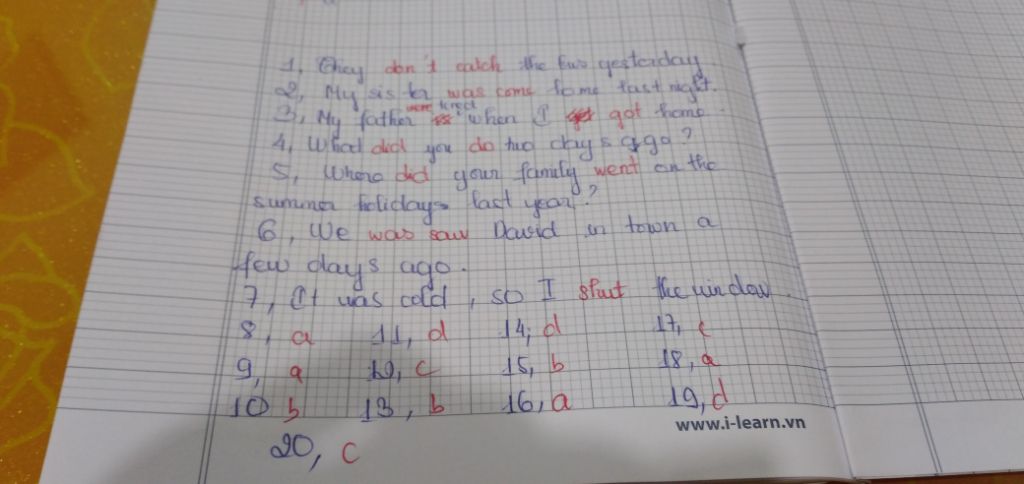 1, They don't catch the bus yesterday.
2, My sister was come home last night.
were tired
3, My father when I got home.
4, What did you do two days ago?
5, Where did your family went on the
summer holidays last year?
6, We was saw David in town a
few days ago.
7, It was cold, so I shut the window.
8, a 11, d 14, d 17, c
9, a 12, c 15, b 18, a
10 b 13, b 16, a 19, d
www.i-learn.vn
20, c